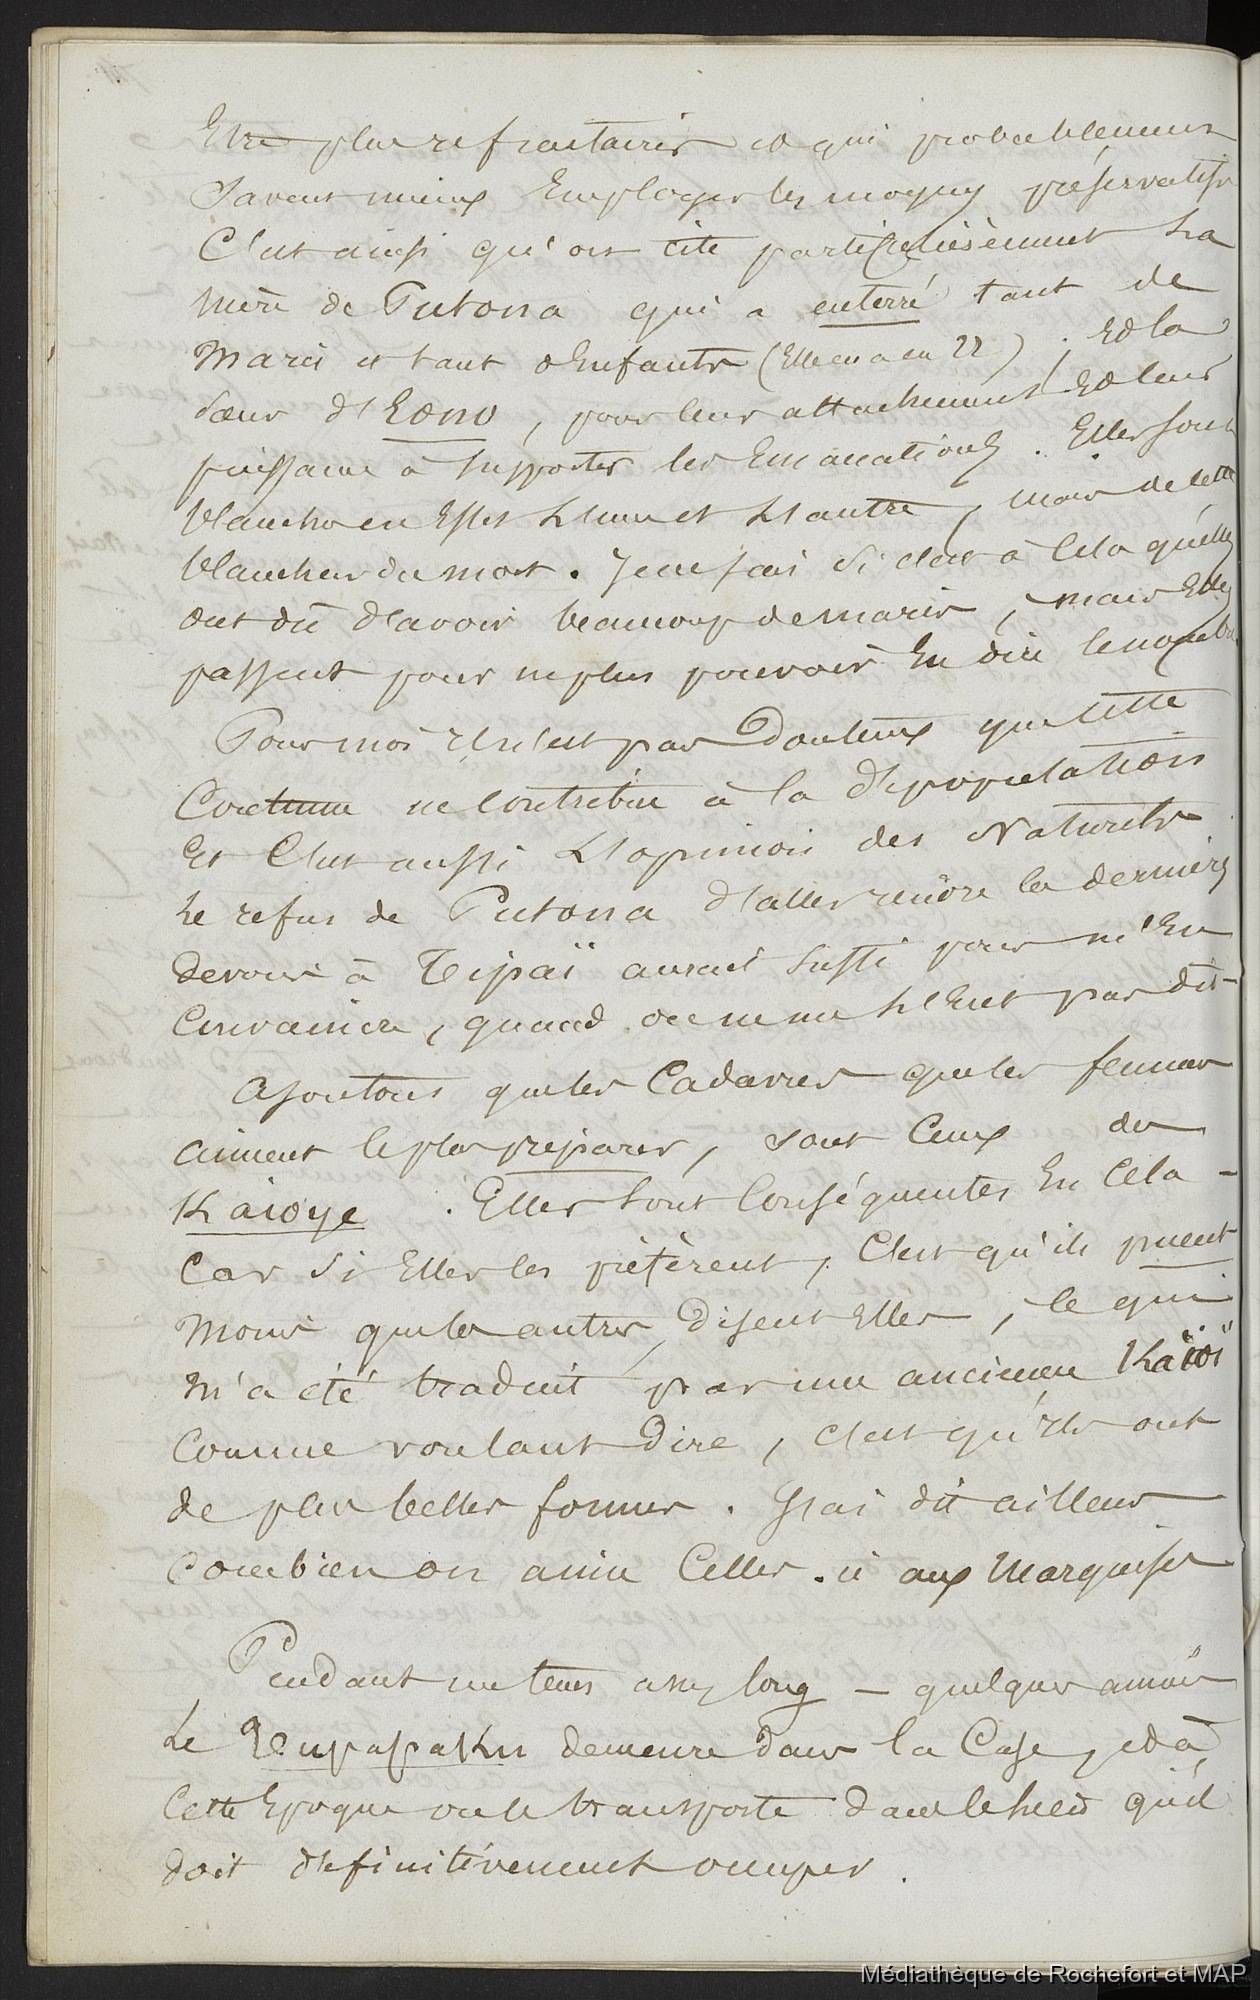 Etre plus refractaires et qui probablement
Savent mieux Employer les moyens préservatifs
C'est ainsi qu'on cite particulièrement La
mère de Putona qui a enterré tant de
Maris et tant d'Enfants (Elle en a eu 22) ; Et la
sœur d'Eono, pour leur attachement Et leur
puissance à Supporter les Emanations. Elles sont
blanches en Effet L'une et L'autre, mais de cette
blancheur de mort. Je ne sais Si c'est à Cela qu'elles
ont dû d'avoir beaucoup de maris, mais Elles
passent pour ne plus pouvoir En dire le nombre
Pour moi Il n'est pas Douteux que Cette
Coutume ne Contribue à la dépopulation
Et C'est aussi L'opinion des Naturels
Le refus de Putona d'aller rendre les derniers
devoirs à Tipaï aurait Suffi pour m'En
Convaincre, quand on ne me L'Eut pas dit
Ajoutons que les Cadavres que les femmes
aiment le plus préparer, sont Ceux des
Kaioye. Elles Sont Conséquentes En Cela -
Car Si Elles les préfèrent, C'est qu'ils puent
Moins que les autres, Disent Elles, Ce qui
m'a été traduit par une ancienne Kaïoï
Comme voulant Dire, C'est qu'Ils ont
de plus belles formes. J'ai dit ailleurs
Combien on aime Celles-ci aux Marquises
Pendant un tems assez long - quelques années
Le Tupapakū demeure dans la Case, et à
Cette Epoque on le transporte dans le lieu qu'il
doit définitivement occuper.
Médiathèque de Rochefort et MAP